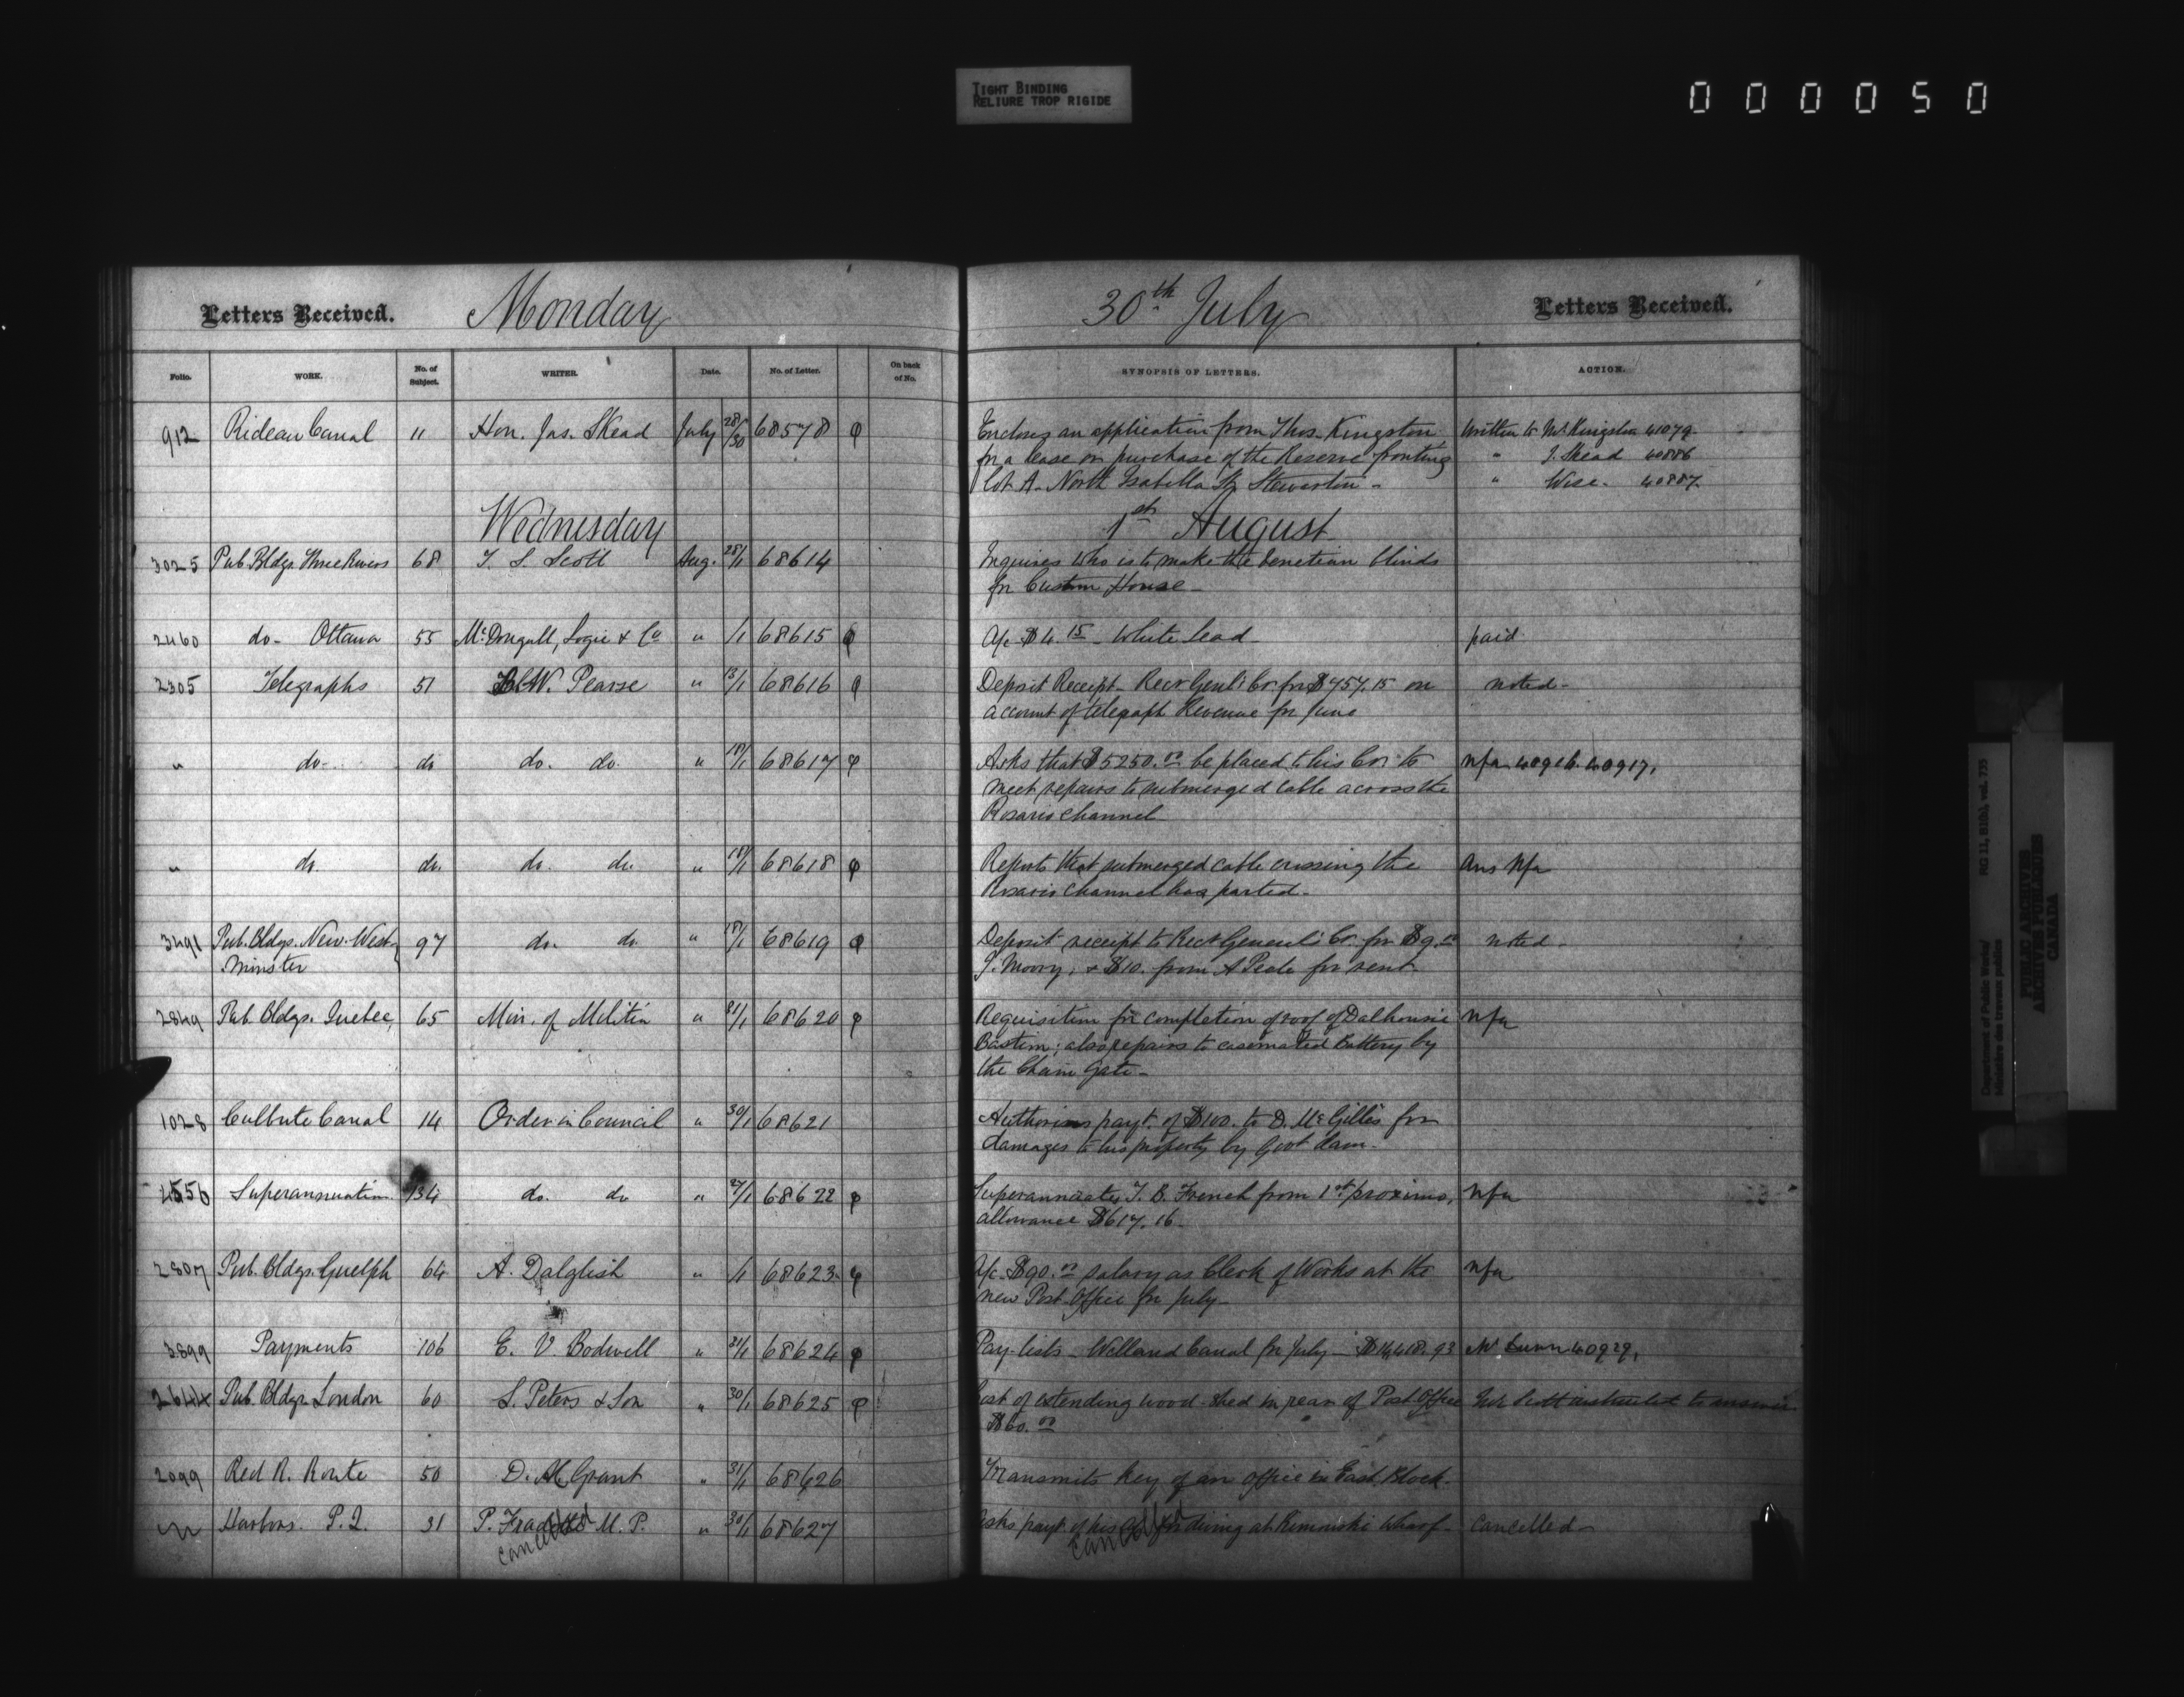 TIGHT BINDING
RELIURE TROP RIGIDE
000050
Letters Received. Monday 30th July Letters Received.
Folio. WORK. No. of Subject. WRITER. Date. No. of Letter. On back of No. SYNOPSIS OF LETTERS. ACTION.
912 Rideau Canal 11 Hon. Jas. Skead July 28/30 68578 φ Encloses an application from Thos. Kingston Written to Mr. Kingston 41079
for a lease or purchase of the Reserve fronting " J. Skead 40886
lot A. North Isabella St. Stewarton - " Wise. 40887
Wednesday 1st August
3025 Pub. Bldgs. Three Rivers 68 T. S. Scott Aug. 28/1 68614 Inquires who is to make the venetian blinds
for Custom House -
2460 do - Ottawa 55 McDougall, Logie & Co " /1 68615 φ A/c $4.15 - White lead paid
2305 Telegraphs 51 W. Pearse " 13/1 68616 φ Deposit Receipt - Recr Genl's Cr. for $457.15 on noted -
account of telegraph Revenue for June
" do - do do. do. " 18/1 68617 φ Asks that $5250.00 be placed to his Cr. to Nfa 40916. 40917.
meet repairs to submerged cable across the
Rosario channel
" do. do. do. do. " 18/1 68618 φ Reports that submerged cable crossing the Ans Nfa
Rosario channel has parted -
3491 Pub. Bldgs. New West- 97 do. do. " 18/1 68619 φ Deposit receipt to Recr General's Cr. for $9.00 noted -
minster J. Moory, & $10. from A Peele for rent.
2849 Pub. Bldgs. Quebec, 65 Min. of Militia " 31/1 68620 φ Requisition for completion of roof of Dalhousie Nfa
Bastion; also repairs to casemated Battery by
the Chain Gate -
1028 Culbute Canal 14 Order in Council " 30/1 68621 Authorises payt. of $100. to D. McGillis for
damages to his property by Govt dam -
4556 Superannuation 134 do. do " 27/1 68622 φ Superannuates T. B. French from 1st proximo, Nfa
allowance $617.16 -
2807 Pub. Bldgs. Guelph 64 A. Dalglish " /1 68623 φ A/c $90.00 salary as Clerk of Works at the Nfa
new Post Office for July -
3899 Payments 106 E. V. Bodwell " 31/1 68624 φ Pay-lists - Welland Canal for July - $14,418.93 Mr 40929,
2644 Pub. Bldgs. London 60 S. Peters & Son " 30/1 68625 φ Cost of extending wood-shed in rear of Post Office Mr Scott instructed to answer
$60.00
2099 Red R. Route 50 D. M. Grant " 31/1 68626 Transmits key of an office in East Block.
Harbors. P.Q. 31 P. M. P. " 30/1 68627 Asks payt. of his for diving at Rimouski Wharf - Cancelled -
cancelled cancelled
Department of Public Works/ RG 11, B1(b), vol. 735
Ministère des travaux publics
PUBLIC ARCHIVES
ARCHIVES PUBLIQUES
CANADA